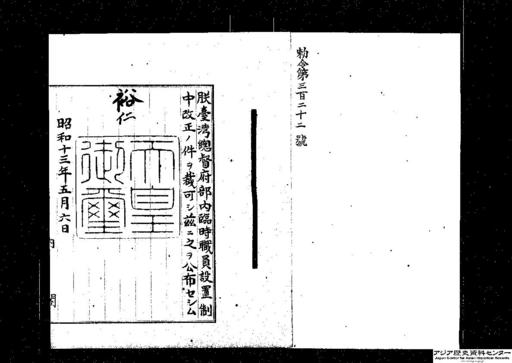 勅令第三百二十二號
朕臺灣總督府部內臨時職員設置制
中改正ノ件ヲ裁可シ茲ニ之ヲ公布セシム
裕仁
天皇
御璽
昭和十三年五月六日
アジア歴史資料センター
Japan Center for Asian Historical Records